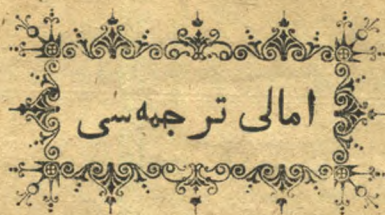 امالی ترجمه‌سی